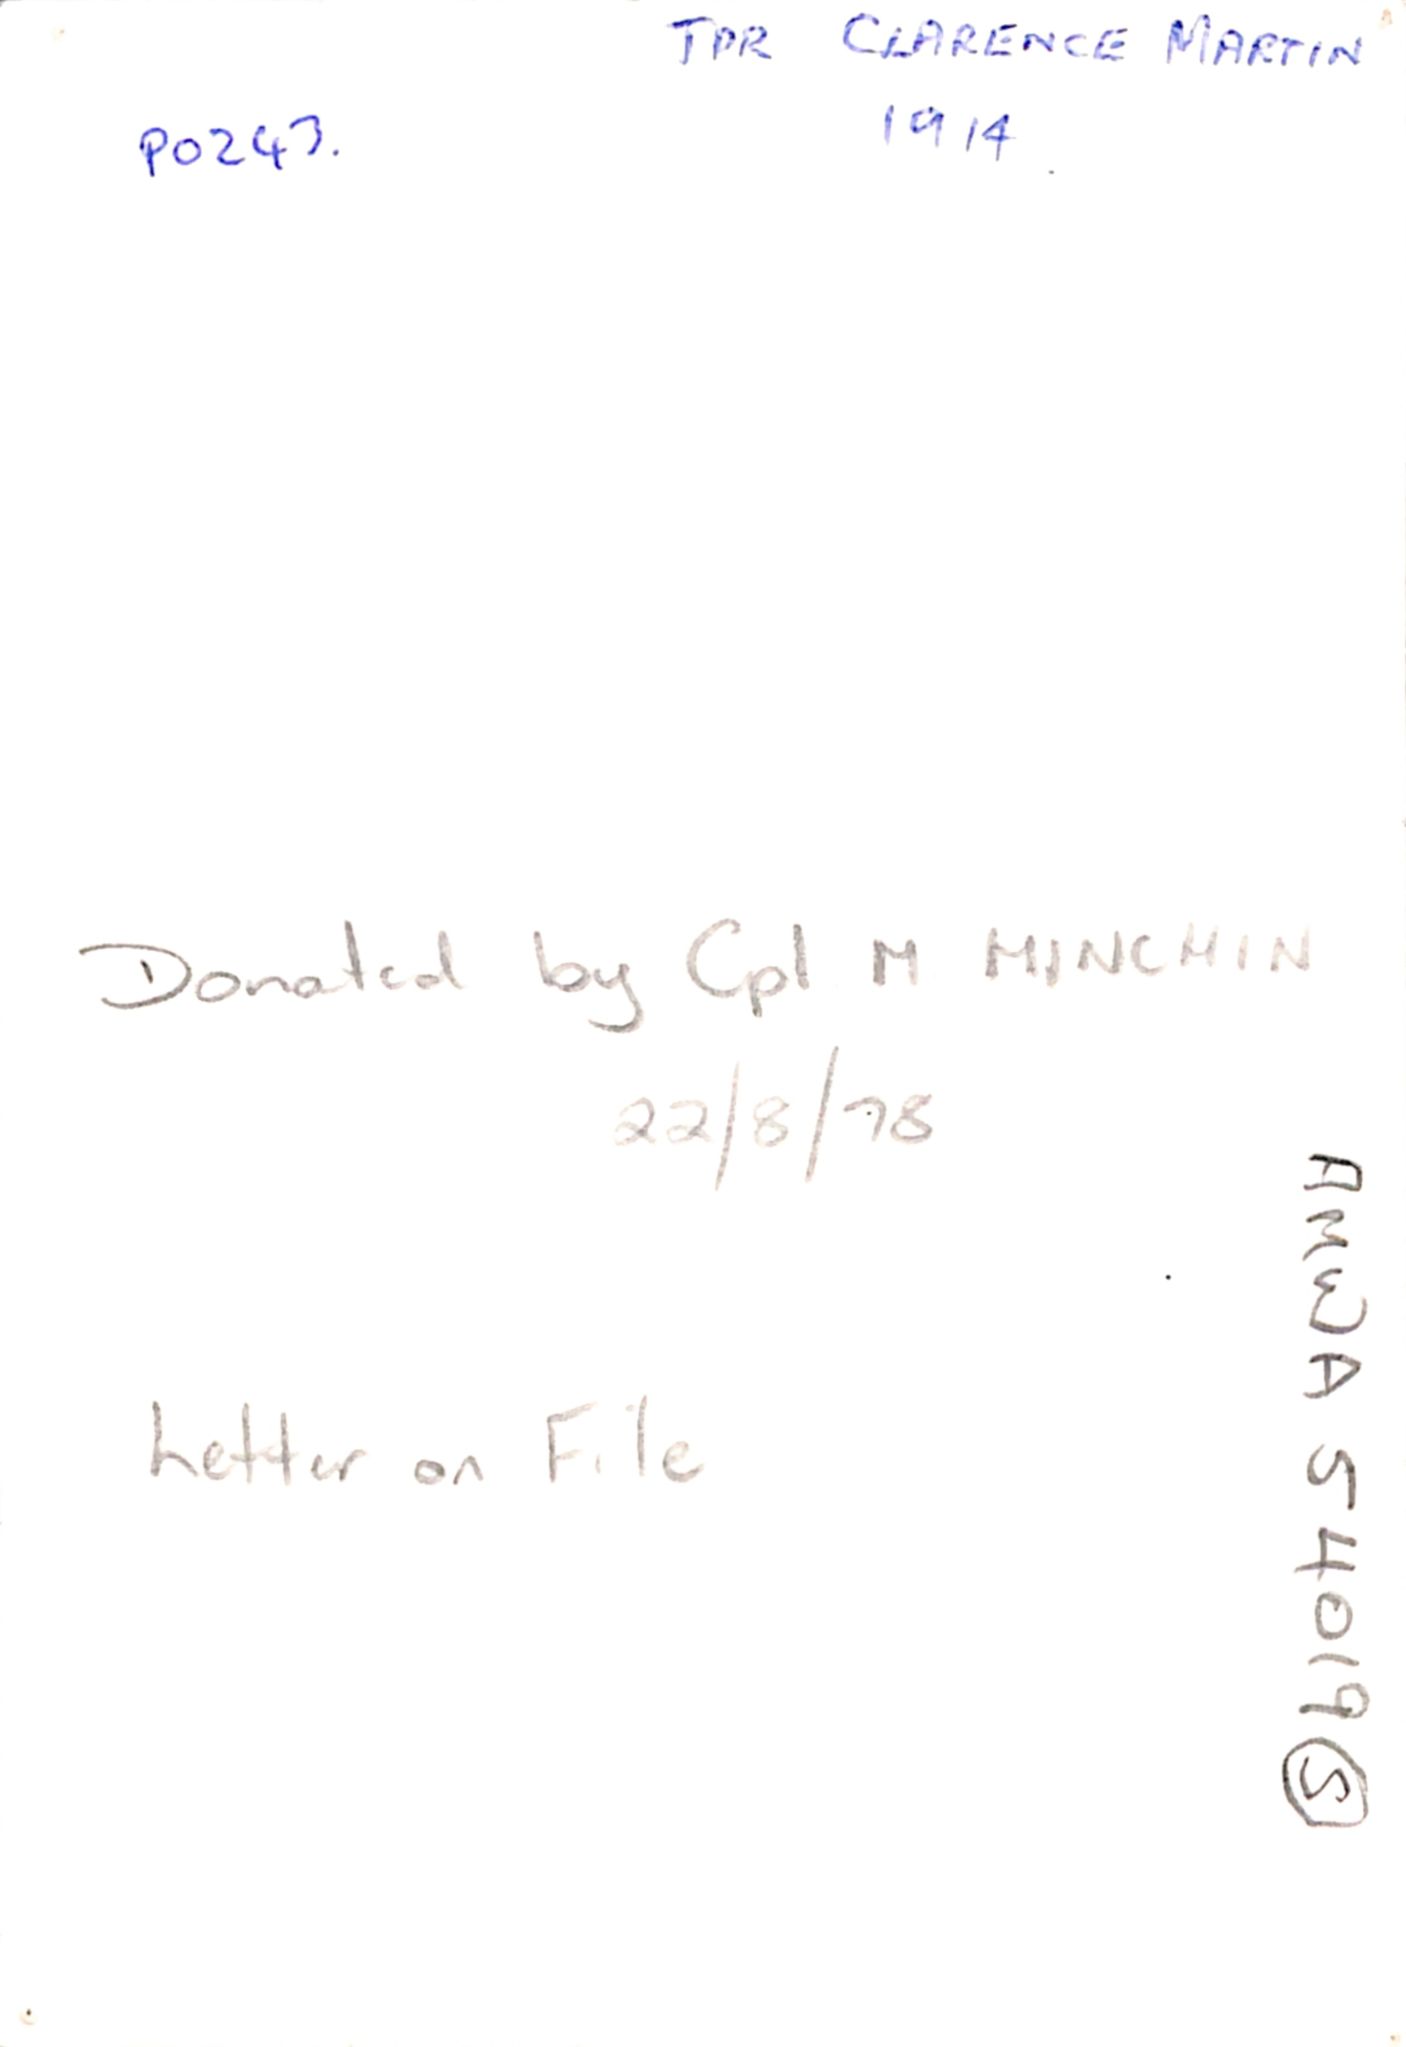 TPR CLARENCE MARTIN
1914
P0243.
Donated by Cpl M MINCHIN
22/8/78
Letter on File
AMWA 54019 S